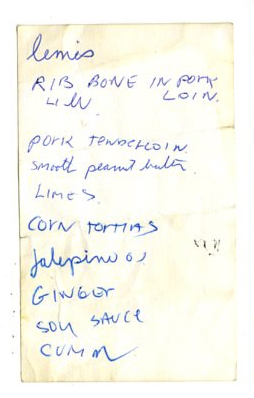 lemis
RIB BONE IN PORK
LOIN.
PORK TENDERLOIN.
smooth peanut butter
LIMES
CORN TORTTIAS
Jalepinoos
GINGER
SOY SAUCE
CUMIN